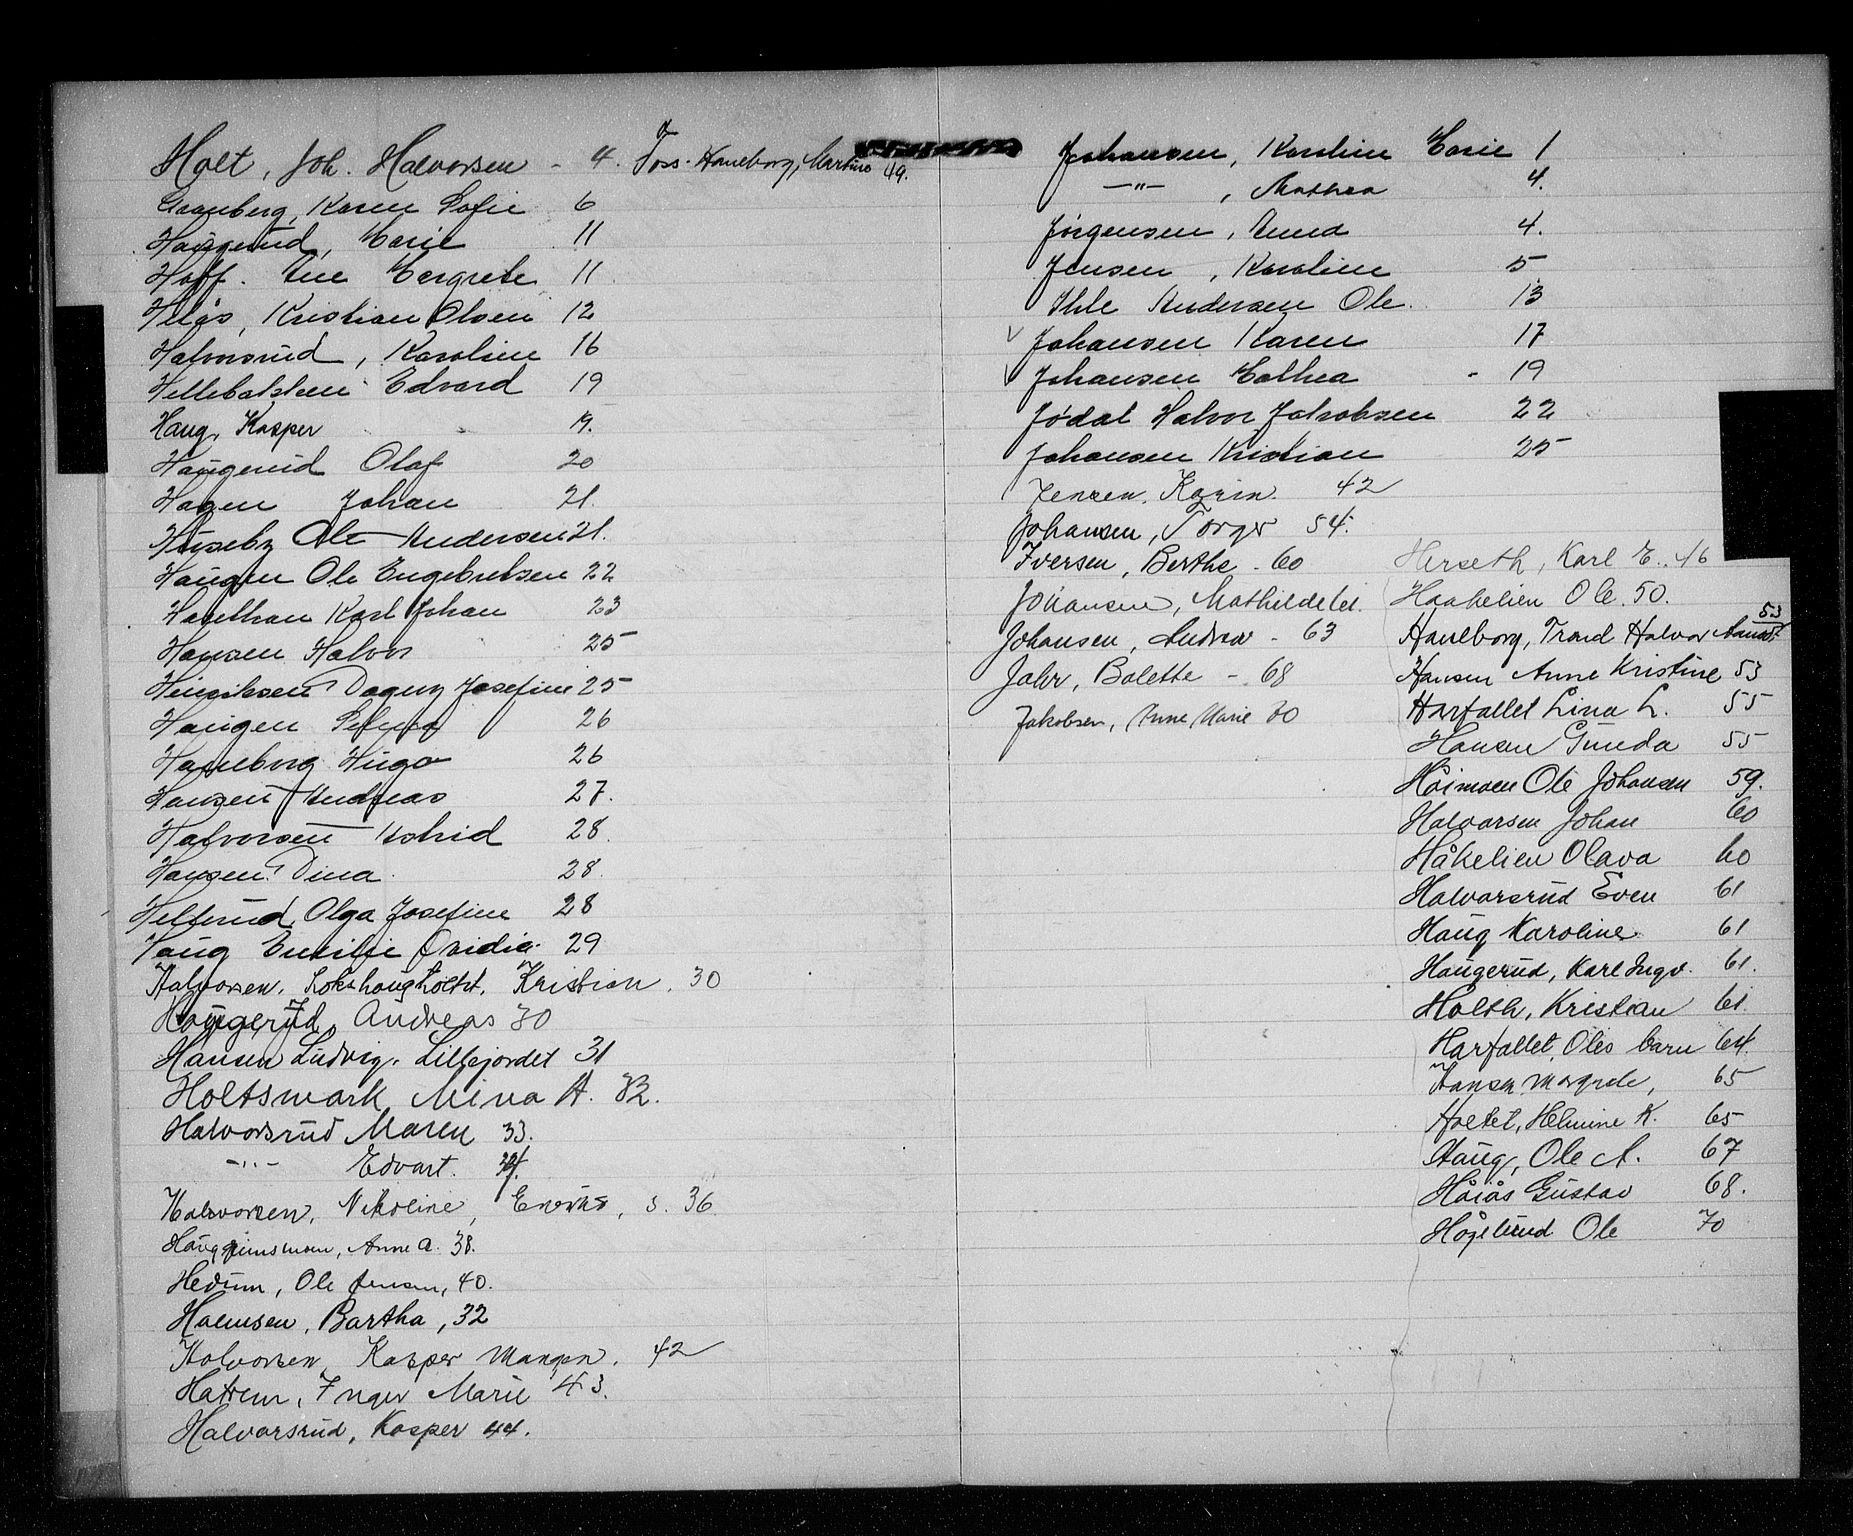 Holt, Joh. Halvorsen - 4. Foss-Haneborg, Martine 49.
Granberg, Karen Sofie 6
Haugerud, Marie 11
Hoff. Ane Margrete 11
Helås, Kristian Olsen 12
Halvorsrud, Karoline 16
Edvard 19
Haug, Kasper 19.
Haugerud Olaf 20
Hagen Johan 21.
Huseby Ole Andersen 21.
Haugen Ole Engebretsen 22
Karl Johan 23
Hansen Halvor 25
Henriksen Dagny Josefine 25
Haugen Selma 26
Haneborg Hugo 26
Hansen Andreas 27.
Halvorsen Astrid 28.
Hansen Dina 28.
Hellerud, Olga Josefine 28
Haug Emilie Ovidia. 29
Halvorsen, Kristian. 30
Haugerud, Andreas 30
Hansen Ludvig. Lillejordet 31
Holtsmark Mina A. 32.
Halvorsrud Maren 33.
-"- Edvart. 34.
Halvorsen, Nikoline, s. 36.
Anne A. 38.
Hedum, Ole Jensen, 40.
Halmsen, Bartha, 32
Halvorsen, Kasper Mangen. 42
Hatrem, Inger Marie 43.
Halvorsrud, Kasper 44.
Johansen, Karoline Marie 1
-"-, Mathea 4.
Jörgensen, Anna 4.
Jensen, Karoline 5
Ihle Andersen Ole. 13
V Johansen Karen 17
V Johansen Mathea - 19
Jödal Halvor Jakobsen 22
Johansen Kristian 25
Jensen, Karin. 42
Johansen, Torger 54.
Iversen, Berthe - 60
Johansen, Mathilde 61.
Johansen, Andrea - 63
Jahr, Bolette - 68
Jakobsen, Anne Marie 70
Herseth, Karl E.. 46
Haakelien Ole. 50.
Haneborg, Trond Halvor 53
Hansen Anne Kristine 53
Harfallet Lina L. 55
Hansen Gunda 55
Höimoen Ole Johansen 59.
Halvorsen Johan 60
Håkelien Olava 60
Halvorsrud Even 61
Haug Karoline 61
Haugerud, Karl Ingv. 61.
Holth, Kristian 61.
Harfallet, Oles barn 64.
Hansen Margrete, 65
Holtet, Helmine K. 65
Haug, Ole A. 67
Höiås Gustav 68.
Högelund Ole 70